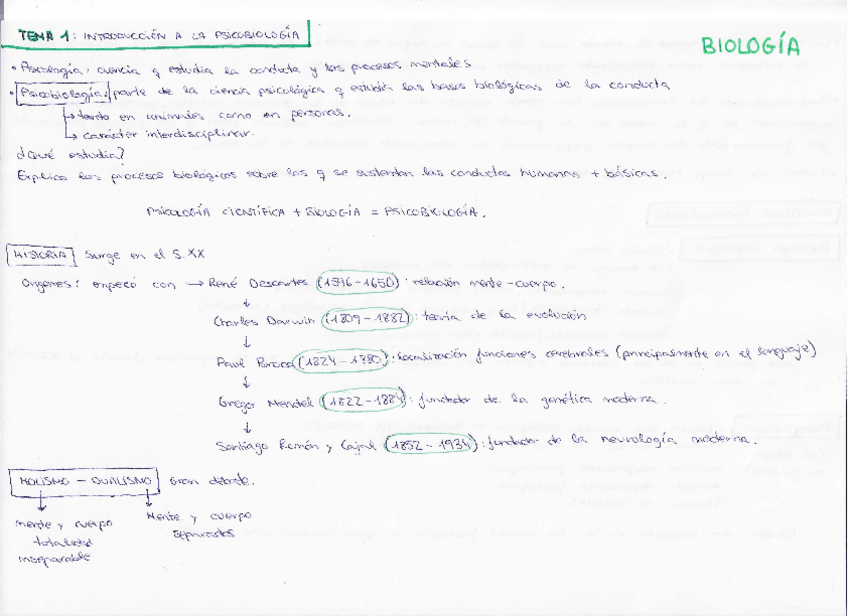 TEMA 1: INTRODUCCIÓN A LA PSICOBIOLOGÍA
BIOLOGÍA
• Psicología: ciencia q estudia la conducta y los procesos mentales
• Psicobiología: parte de la ciencia psicológica q estudia las bases biológicas de la conducta
↳ tanto en animales como en personas.
↳ carácter interdisciplinar.
¿Qué estudia?
Explica los procesos biológicos sobre los q se sustentan las conductas humanas + básicas.
PSICOLOGÍA CIENTÍFICA + BIOLOGÍA = PSICOBIOLOGÍA.
HISTORIA Surge en el S.XX
Orígenes: empezó con → René Descartes (1596-1650): relación mente-cuerpo.
↓
Charles Darwin (1809-1882): teoría de la evolución
↓
Paul Broca (1824-1880): localización funciones cerebrales (principalmente en el lenguaje)
↓
Gregor Mendel (1822-1884): fundador de la genética moderna.
↓
Santiago Ramón y Cajal (1852-1934): fundador de la neurología moderna.
HOLISMO - DUALISMO Gran debate.
↓ ↓
Mente y cuerpo Mente y cuerpo
totalidad separados
inseparable